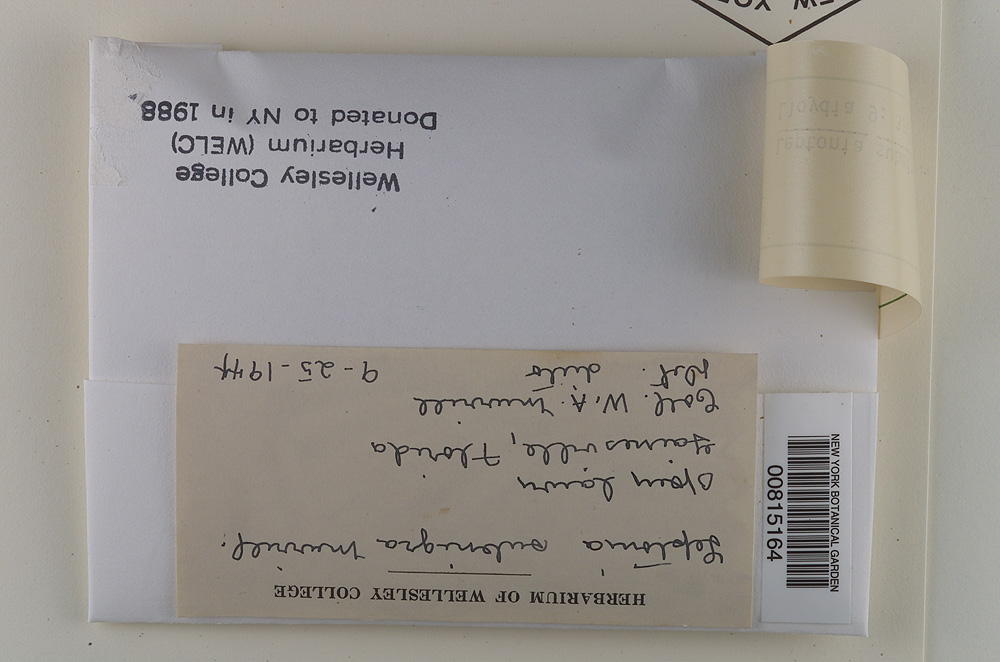 HERBARIUM OF WELLESLEY COLLEGE
Leptonia subnigra Murrill.
Open lawn
Gainesville, Florida
Coll. W. A. Murrill
Det. ditto 9-25-1944
Wellesley College
Herbarium (WELC)
Donated to NY in 1988
NEW YORK BOTANICAL GARDEN
00815164
Leptonia su
Lloydia 9:
EW YO